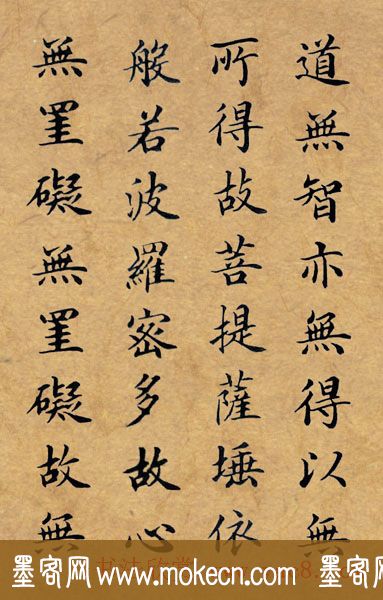 道無智亦無得以無
所得故菩提薩埵依
般若波羅密多故心
無罣礙無罣礙故無
书法欣赏
墨客网 www.mokecn.com 墨客网